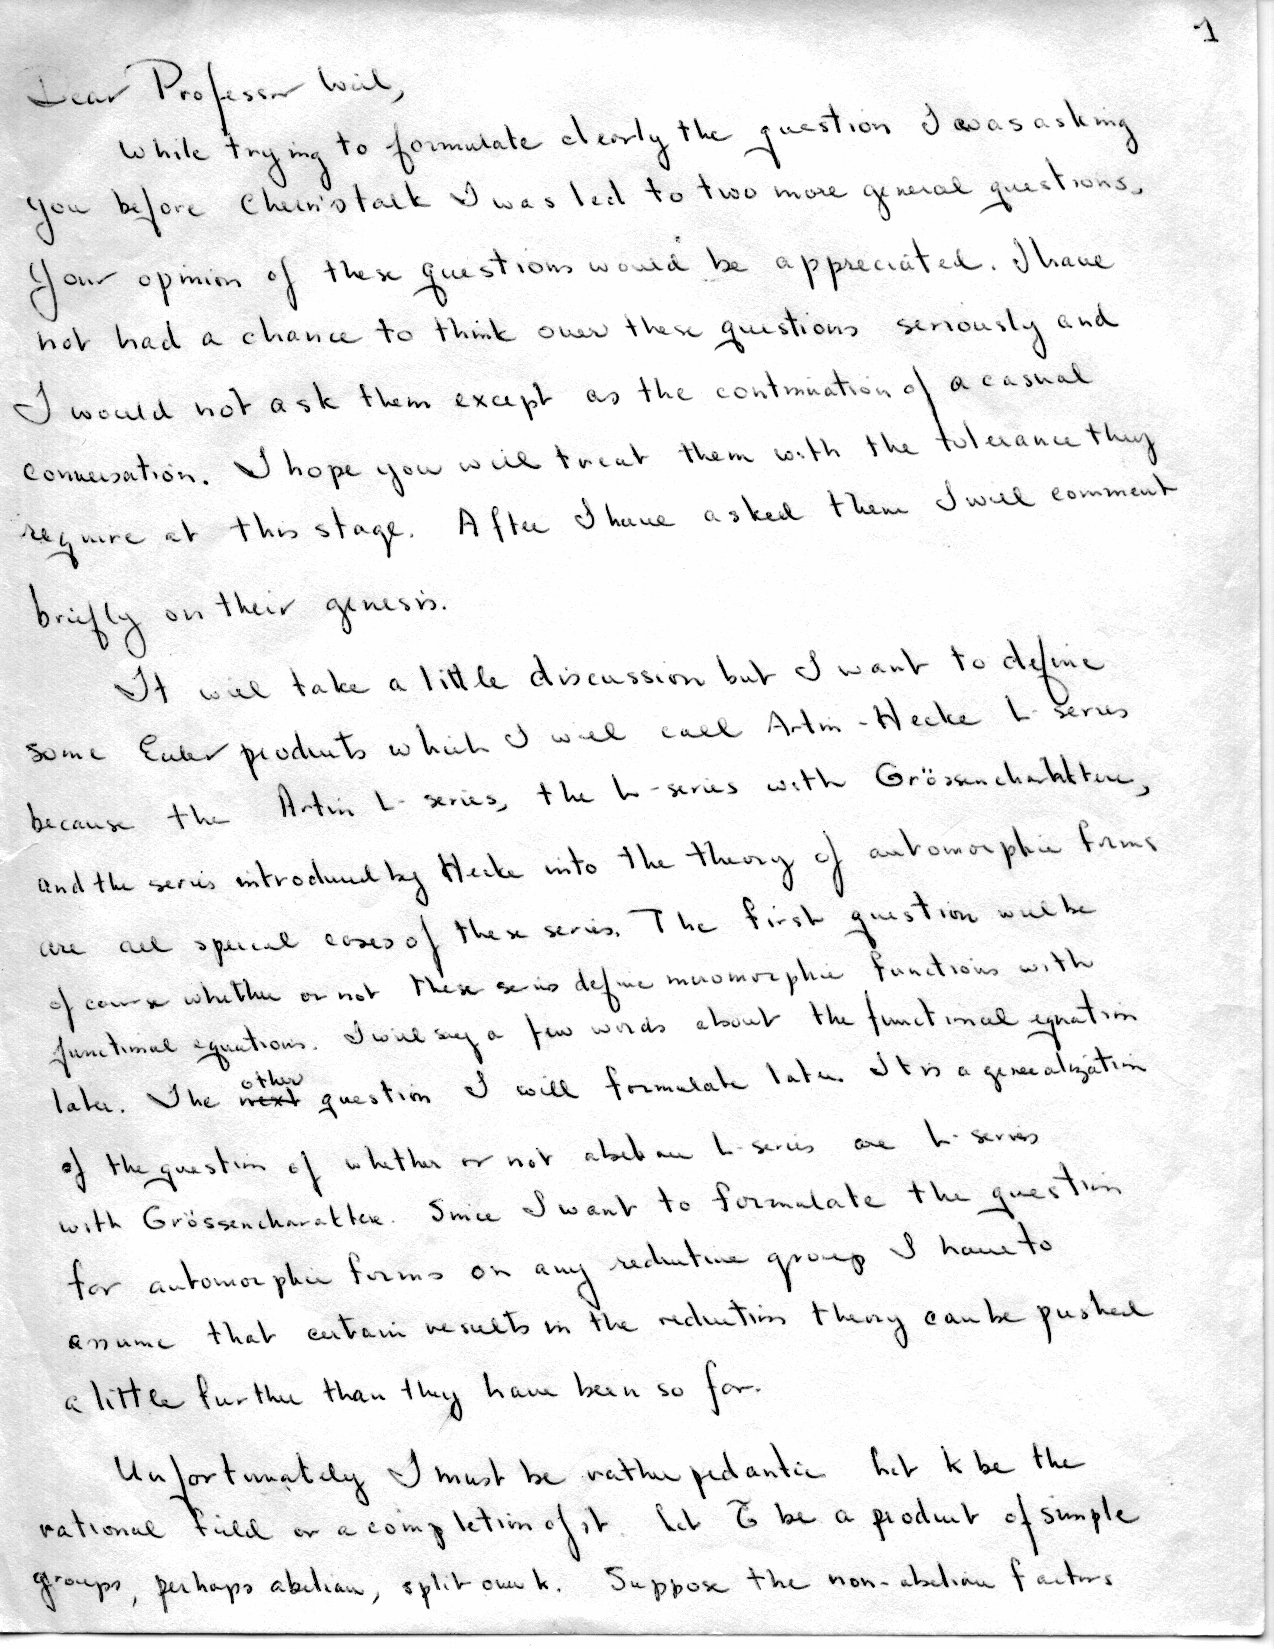 1
Dear Professor Weil,
While trying to formulate clearly the question I was asking
you before Chern's talk I was led to two more general questions.
Your opinion of these questions would be appreciated. I have
not had a chance to think over these questions seriously and
I would not ask them except as the continuation of a casual
conversation. I hope you will treat them with the tolerance they
require at this stage. After I have asked them I will comment
briefly on their genesis.
It will take a little discussion but I want to define
some Euler products which I will call Artin-Hecke L-series
because the Artin L-series, the L-series with Grössencharaktere,
and the series introduced by Hecke into the theory of automorphic forms
are all special cases of these series. The first question will be
of course whether or not these series define meromorphic functions with
functional equations. I will say a few words about the functional equation
other
later. The next question I will formulate later. It is a generalization
of the question of whether or not abelian L-series are L-series
with Grössencharaktere. Since I want to formulate the question
for automorphic forms on any reductive group I have to
assume that certain results in the reduction theory can be pushed
a little further than they have been so far.
Unfortunately I must be rather pedantic. Let k be the
rational field or a completion of it. Let G̃ be a product of simple
groups, perhaps abelian, split over k. Suppose the non-abelian factors